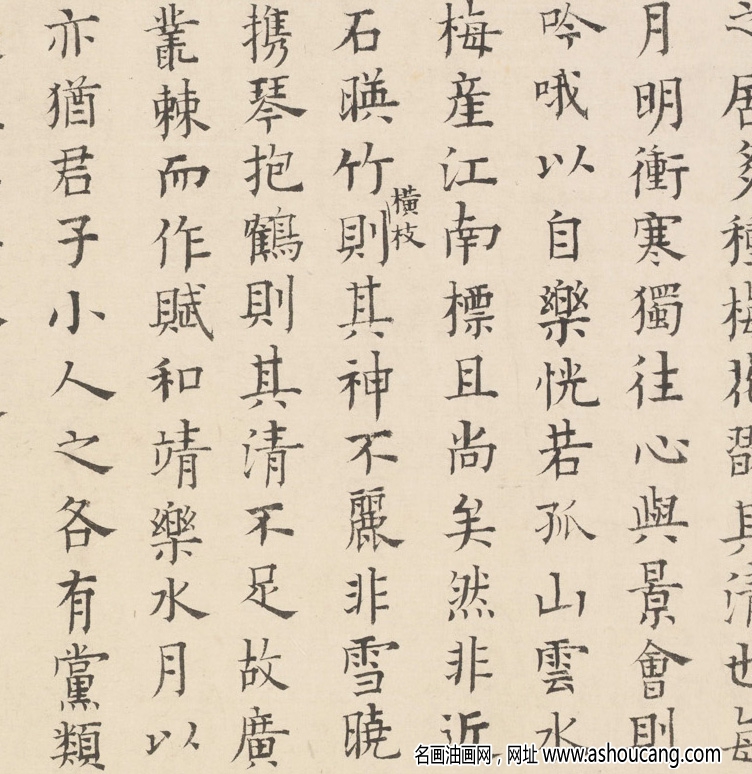 之居多種梅花翫其清也每
月明衝寒獨往心與景會則
吟哦以自樂恍若孤山雲水
梅產江南標且尚矣然非近
橫枝
石暎竹則其神不麗非雪曉
携琴抱鶴則其清不足故廣
叢棘而作賦和靖樂水月以
亦猶君子小人之各有黨類
名画油画网，网址 www.ashoucang.com